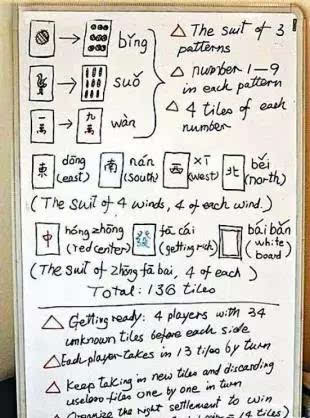 → bǐng
→ suǒ
一萬 → 九萬 wàn
△ The suit of 3 patterns
△ number 1-9 in each pattern
△ 4 tiles of each number
東 dōng (east) 南 nán (South) 西 xī (west) 北 běi (north)
(The suit of 4 winds, 4 of each wind.)
中 hóng zhōng (red center) 發 fā cái (getting rich) bái bǎn (white board)
(The suit of zhōng fā bai, 4 of each)
Total: 136 tiles
△ Getting ready: 4 players with 34 unknown tiles before each side
△ Each player takes in 13 tiles by turn
△ Keep taking in new tiles and discarding useless tiles one by one in turn
Organize the right settlement to win
14 tiles)